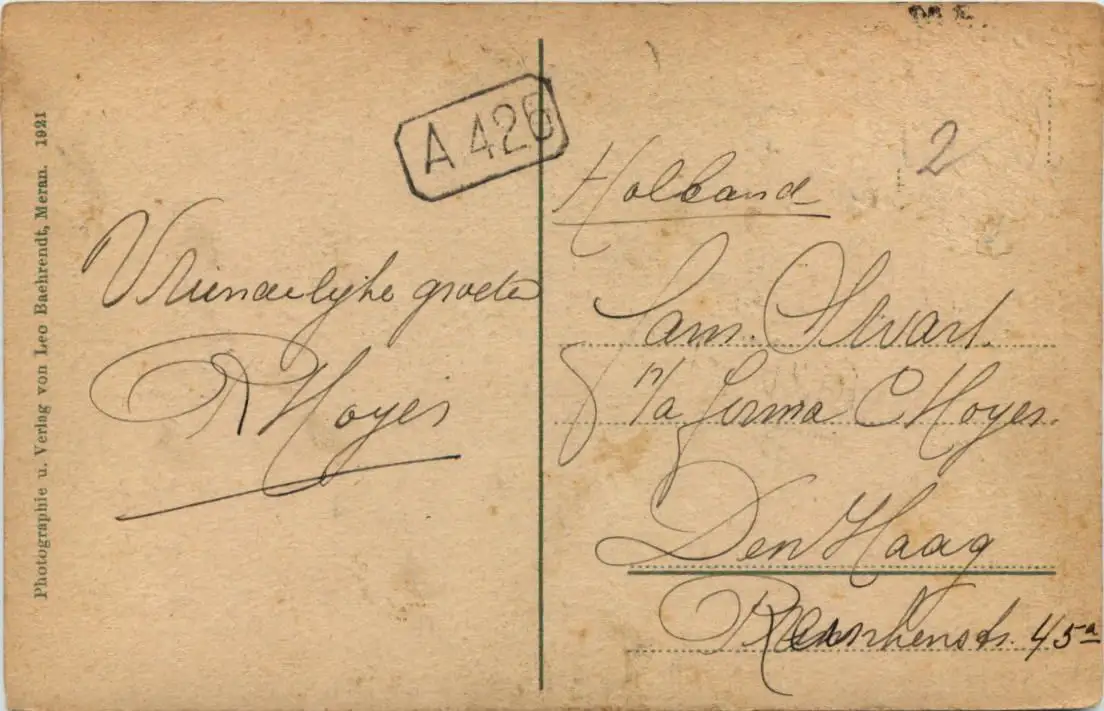 Photographie u. Verlag von Leo Baehrendt, Meran. 1921
A 426
Vriendelijke groeten
R Hoyer
Holland
2
Sam. Swart.
p/a firma C Hoyer.
Den Haag
45a